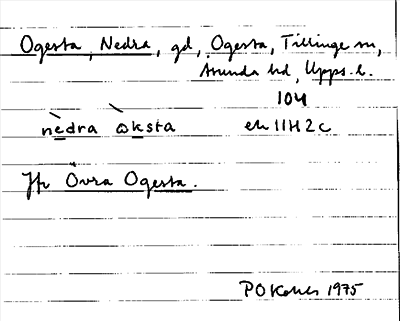 Ogesta, Nedra, gd, Ogesta, Tillinge sn,
Åsunda hd, Upps. l.
104
nèdra òksta ek 11H 2c
Jfr Övra Ogesta.
1975